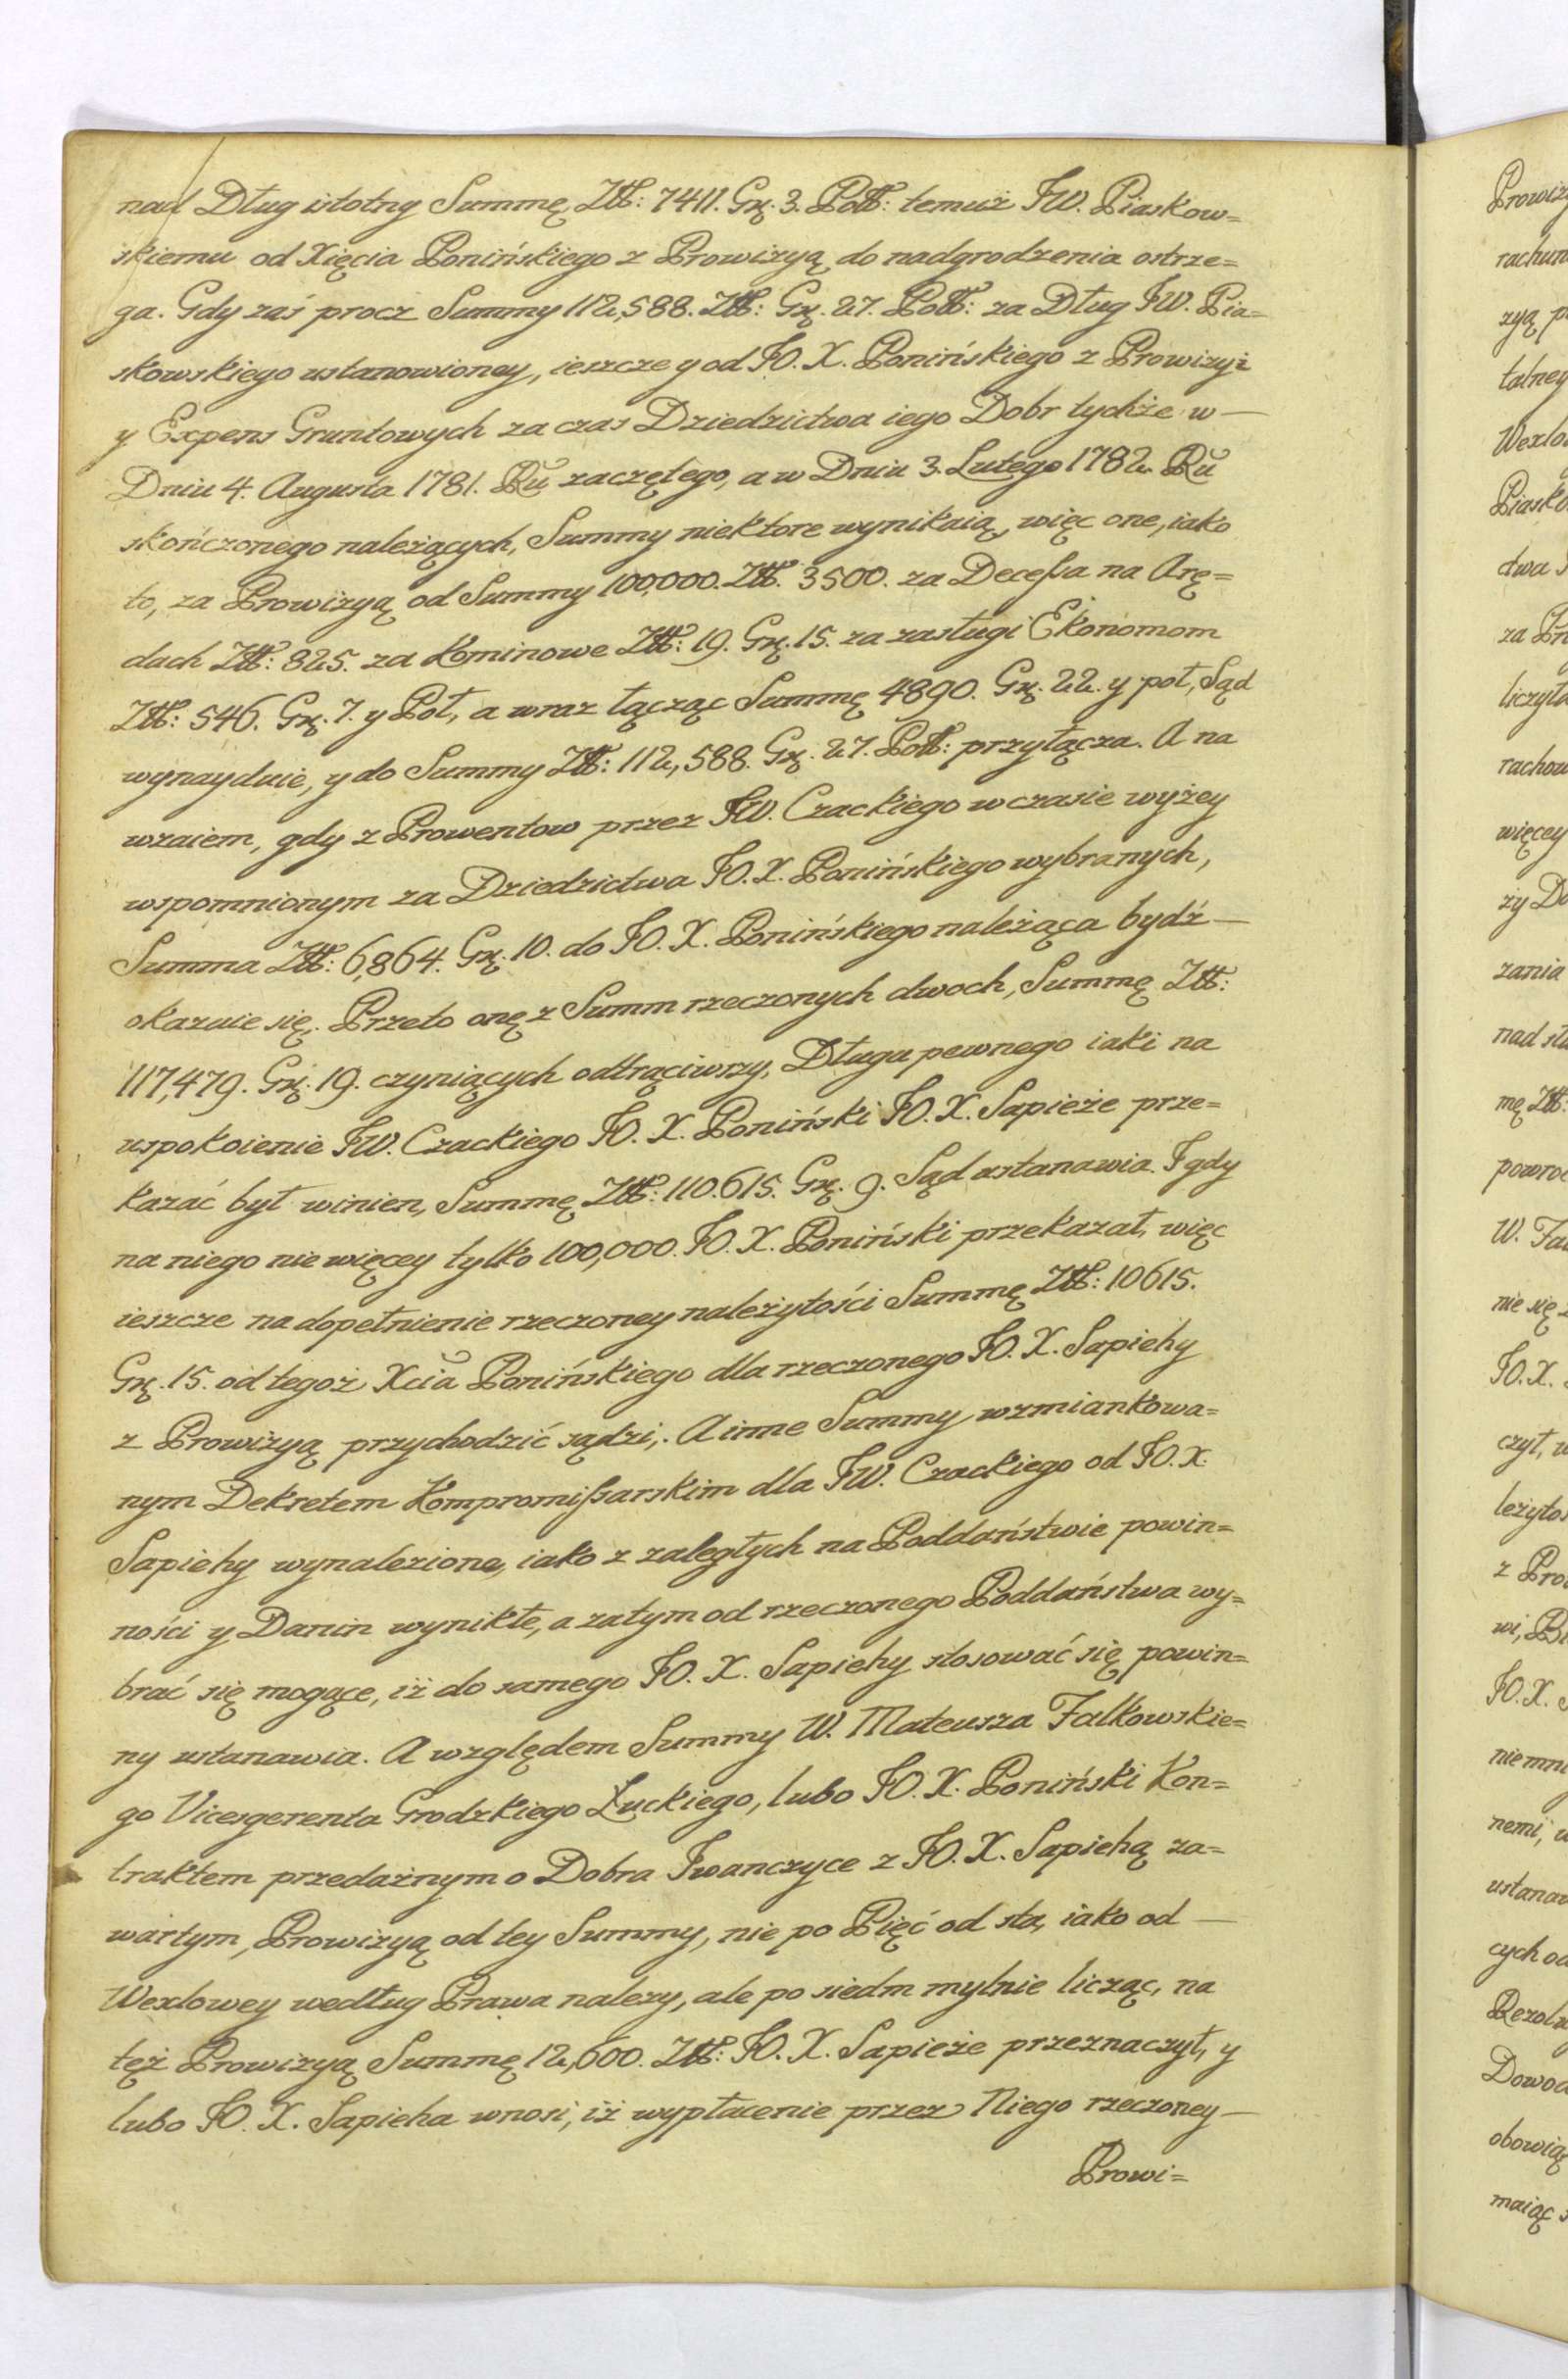 nad Dług istotny Summę Złł: 7411. Gr. 3. Połł: temuż JW. Piaskow=
skiemu od Xięcia Ponińskiego z Prowizyą do nadgrodzenia ostrze=
ga. Gdy zaś procz Summy 112,588. Złł: Gr. 27. Połł: za Dług JW. Pia=
skowskiego ustanowioney, ieszcze y od JO. X. Ponińskiego z Prowizyi
y Expens Gruntowych za czas Dziedzictwa iego Dobr tychże w —
Dniu 4. Augusta 1781. Ru zaczętego, a w Dniu 3. Lutego 1782. Ru
skończonego należących, Summy niektore wynikaią, więc one, iako
to, za Prowizyą od Summy 100,000. Złł. 3500. za Decessa na Arę=
dach Złł: 825. za Kominowe Złł: 19. Gr. 15. za zasługi Ekonomom
Złł: 546. Gr. 7. y Poł, a wraz łącząc Summę 4890. Gr. 22. y poł, Sąd
wynayduie, y do Summy Złł: 112,588. Gr. 27. Połł: przyłącza. A na
wzaiem, gdy z Prowentow przez JW. Czackiego w czasie wyżey
wspomnionym za Dziedzictwa JO. X. Ponińskiego wybranych,
Summa Złł: 6,864. Gr. 10. do JO. X. Ponińskiego należąca bydź —
okazuie się. Przeto onę z Summ rzeczonych dwoch, Summę Złł:
117,479. Gr. 19. czyniących odtrąciwszy, Długu pewnego iaki na
uspokoienie JW. Czackiego JO. X. Poniński JO. X. Sapieże prze=
kazać był winien, Summę Złł: 110.615. Gr. 9. Sąd ustanawia. I gdy
na niego nie więcey tylko 100,000. JO. X. Poniński przekazał, więc
ieszcze na dopełnienie rzeczoney należytości Summę Złł: 10615.
Gr. 15. od tegoż Xcia Ponińskiego dla rzeczonego JO. X. Sapiehy
z Prowizyą przychodzić sądzi,. A inne Summy wzmiankowa=
nym Dekretem Kompromissarskim dla JW. Czackiego od JO. X.
Sapiehy wynalezione, iako z zaległych na Poddaństwie powin=
ności y Danin wynikłe, a zatym od rzeczonego Poddaństwa wy=
brać się mogące, iż do samego JO. X. Sapiehy stosować się powin=
ny ustanawia. A względem Summy W. Mateusza Falkowskie=
go Vicesgerenta Grodzkiego Łuckiego, lubo JO. X. Poniński Kon=
traktem przedażnym o Dobra Iwanczyce z JO. X. Sapiehą za=
wartym, Prowizyą od tey Summy, nie po Pięć od sta, iako od —
Wexlowey według Prawa nalezy, ale po siedm mylnie licząc, na
tęż Prowizyą Summę 12,600. Złł: JO. X. Sapieże przeznaczył, y
lubo JO. X. Sapieha wnosi, iż wypłacenie przez Niego rzeczoney —
Prowi=